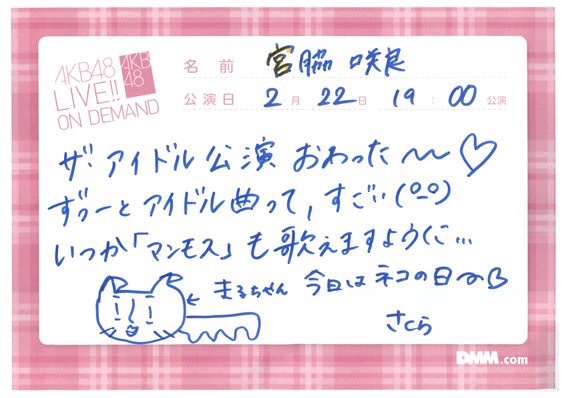 AKB48
LIVE!!
ON DEMAND
AKB
48
名前 宮脇 咲良
公演日 2月 22日 19:00 公演
ザ・アイドル公演 おわった〜〜♡
ずぅーとアイドル曲って、すごい(º-º)
いつか「マンモス」も歌えますように…
← まるちゃん 今日はネコの日
さくら
DMM.com